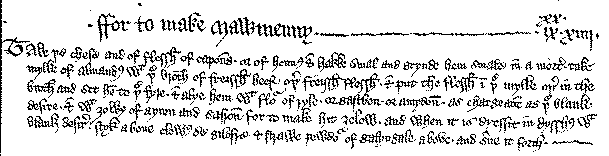 ffor to make mawmenny
xx
ix xiiij
Take þe chese and of flessħ of capons or of hennes & hakke smal and grynde hem smale in a morter take
mylke of almandes wt þe broth of freissħ beef. oþer freissħ flessħ. & put the flessħ i þe mylke oþer in the
broth and set hem to þe fyre. & alye hem wt flor of ryse. or gastbon. or amydon. as chargeant as þe blank
desire. & wt zolkes of ayron and safron for to make hit zelow. and when it is dressit in dysshes wt
blank desire. styk a bove clowes de gilofre & strawe powdor of galyngale above. and serve it forth